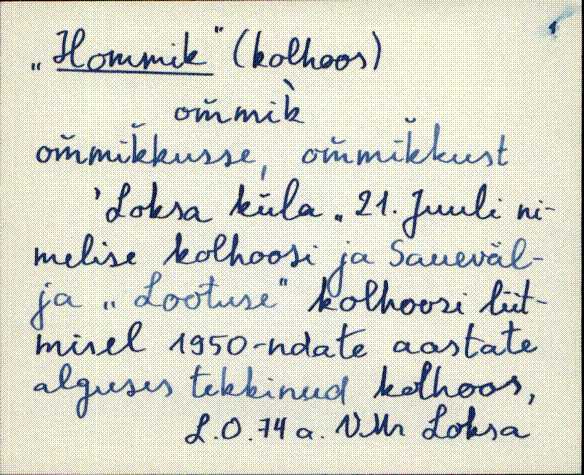 „Hommik" (kolhoos)
om̆mik̀
om̆mik̆kusse, om̆mik̆kust
'Loksa küla „21. Juuli ni-
melise kolhoosi ja Saueväl-
ja „Lootuse" kolhoosi liit-
misel 1950-ndate aastate
alguses tekkinud kolhoos,
L.O. 74 a. VMr Loksa